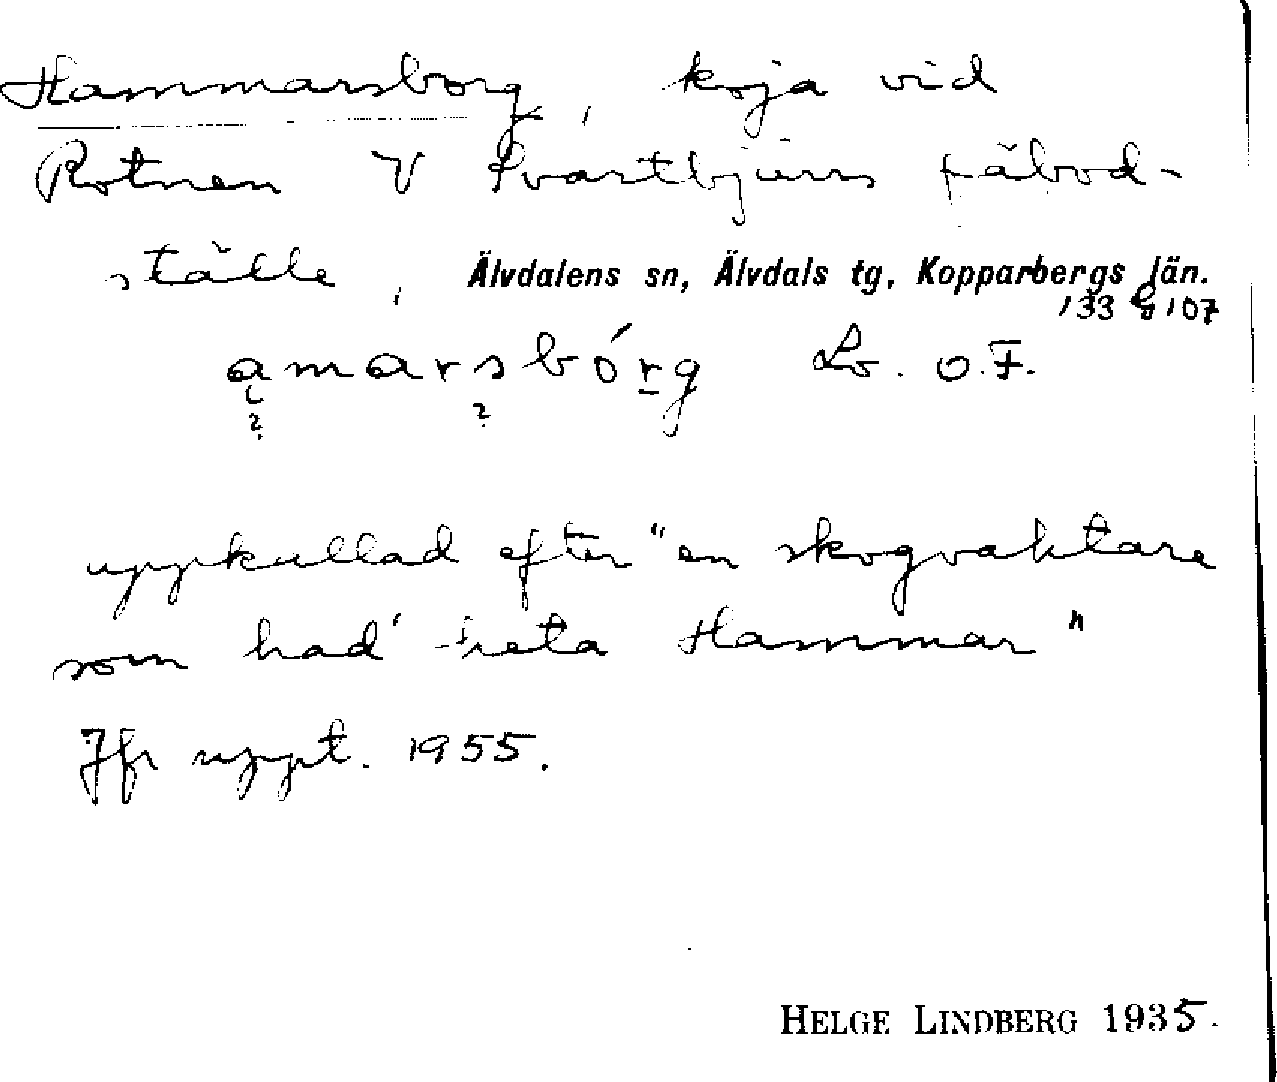 Hammarsborg, koja vid
Rotnen V Svartbjärns fäbod-
ställe, Älvdalens sn, Älvdals tg, Kopparbergs län.
133 107
amarsbórg Lo. o. F.
? ?
uppkallad efter "en skogvaktare
som had' heta Hammar"
Jfr uppt. 1955.
HELGE LINDBERG 1935.